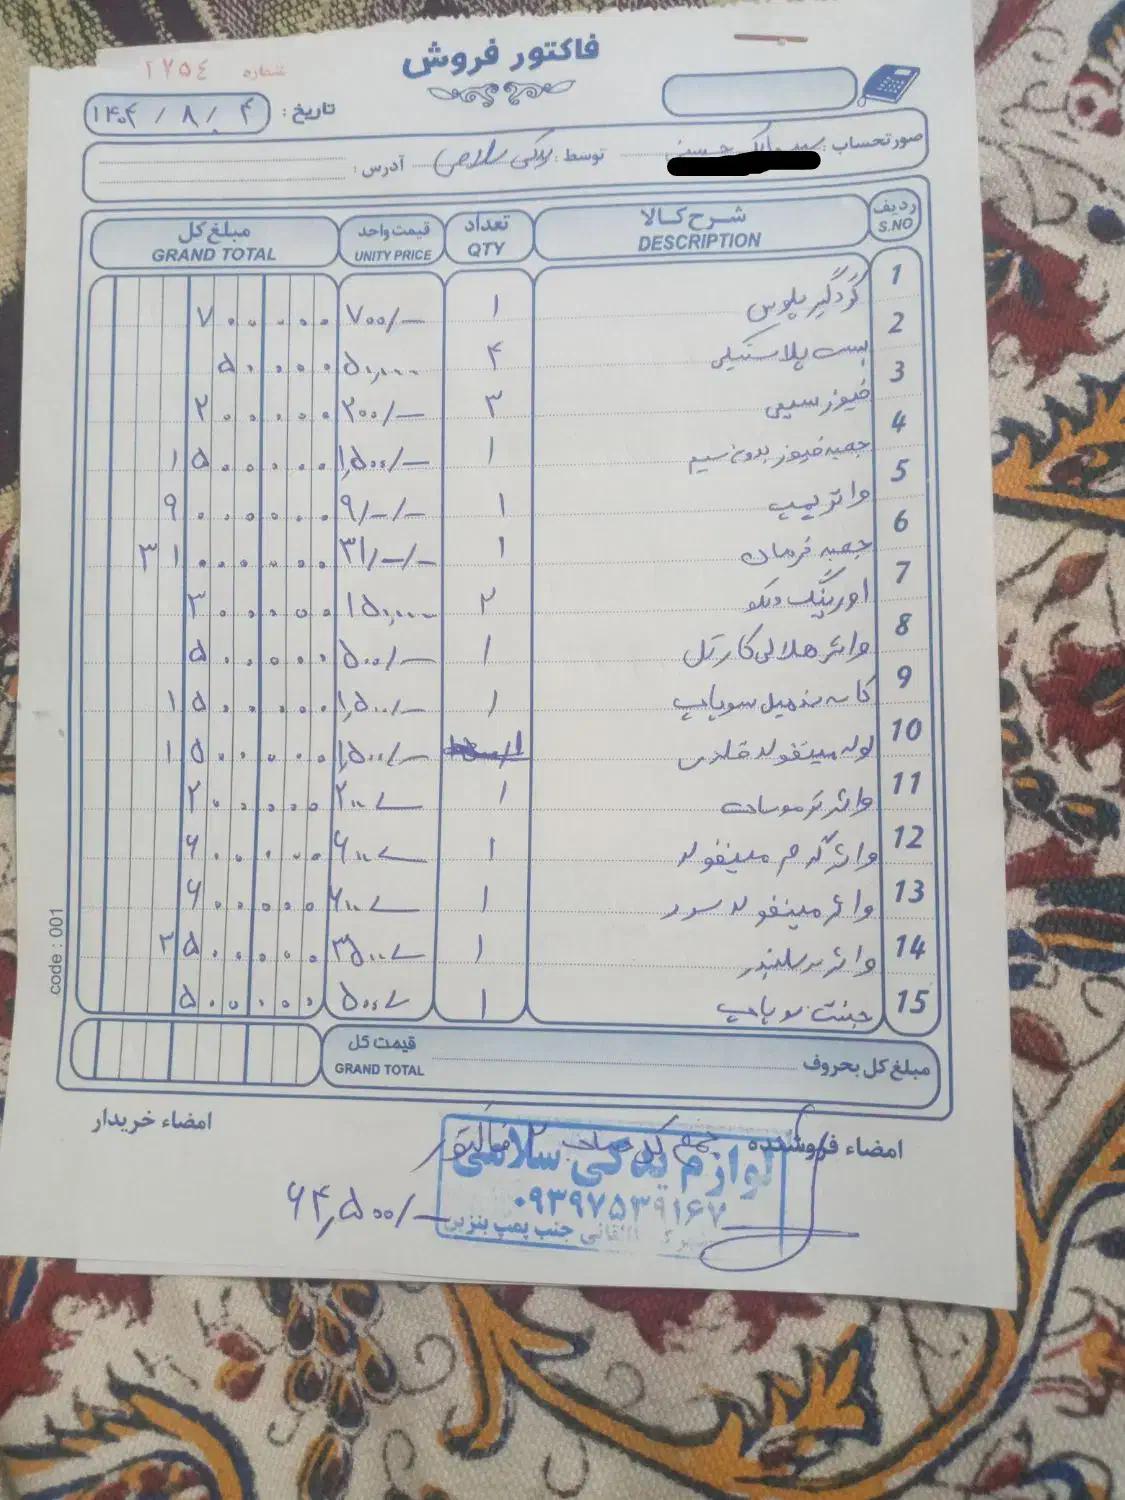 فاکتور فروش
شماره ۱۲۵۴
تاریخ: ۱۴۰۴ / ۸ / ۴
صورتحساب: توسط: یدکی سلامی آدرس:
ردیف S.NO شرح کالا DESCRIPTION تعداد QTY قیمت واحد UNITY PRICE مبلغ کل GRAND TOTAL
1 گردگیر پلوس ۱ ۷۰۰/— ۷۰۰۰۰۰۰
2 بست پلاستیکی ۴ ۵۰,۰۰۰ ۵۰۰۰۰۰
3 فیوز سیمی ۳ ۲۰۰/— ۲۰۰۰۰۰۰
4 جعبه فیوز بدون سیم ۱ ۱,۵۰۰/— ۱۵۰۰۰۰۰۰
5 واتر پمپ ۱ ۹/—/— ۹۰۰۰۰۰۰۰
6 جعبه فرمان ۱ ۳۱/—/— ۳۱۰۰۰۰۰۰۰
7 اورینگ دلکو ۲ ۱۵۰,۰۰۰ ۳۰۰۰۰۰۰
8 واشر هلالی کارتل ۱ ۵۰۰/— ۵۰۰۰۰۰۰
9 کاسه نمد میل سوپاپ ۱ ۱,۵۰۰/— ۱۵۰۰۰۰۰۰
10 لوله مینفولد فلزی ۱ ۱,۵۰۰/— ۱۵۰۰۰۰۰۰
11 واشر ترموستات ۱ ۲۰۰/— ۲۰۰۰۰۰۰
12 واشر گرم مینفولد ۱ ۶۰۰/— ۶۰۰۰۰۰۰
13 واشر مینفولد سرد ۱ ۶۰۰/— ۶۰۰۰۰۰۰
14 واشر سرسیلندر ۱ ۳۵۰۰/— ۳۵۰۰۰۰۰۰
15 سوپاپ ۱ ۵۰۰/— ۵۰۰۰۰۰۰
مبلغ کل بحروف قیمت کل GRAND TOTAL
code : 001
امضاء فروشنده امضاء خریدار
جمع کل حساب ۲ فاکتور
۶۴,۵۰۰/—
لوازم یدکی سلامی
۰۹۳۹۷۵۳۹۱۶۷
جنب پمپ بنزین